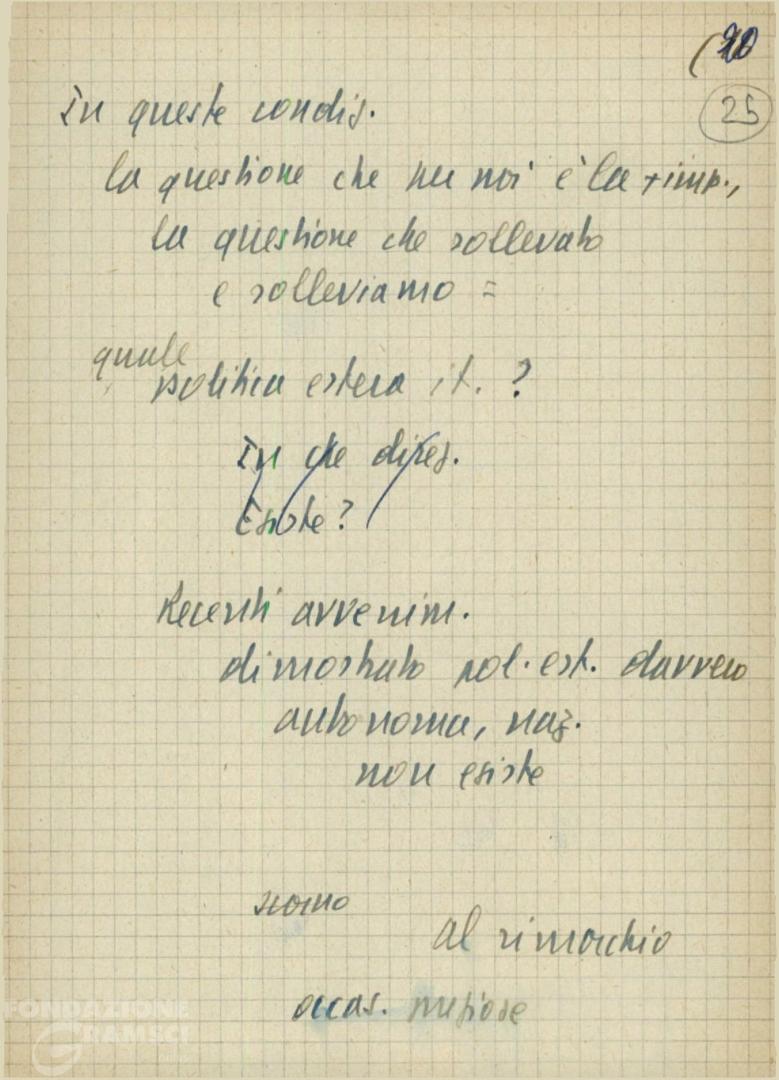 (20
25
In queste condiz.
la questione che per noi è la + imp.,
la questione che sollevato
e solleviamo =
quale
politica estera it. ?
In che direz.
Esiste?
Recenti avvenim.
dimostrato pol. est. davvero
autonoma, naz.
non esiste
siamo
al rimorchio
occas. preziose
FONDAZIONE
GRAMSCI